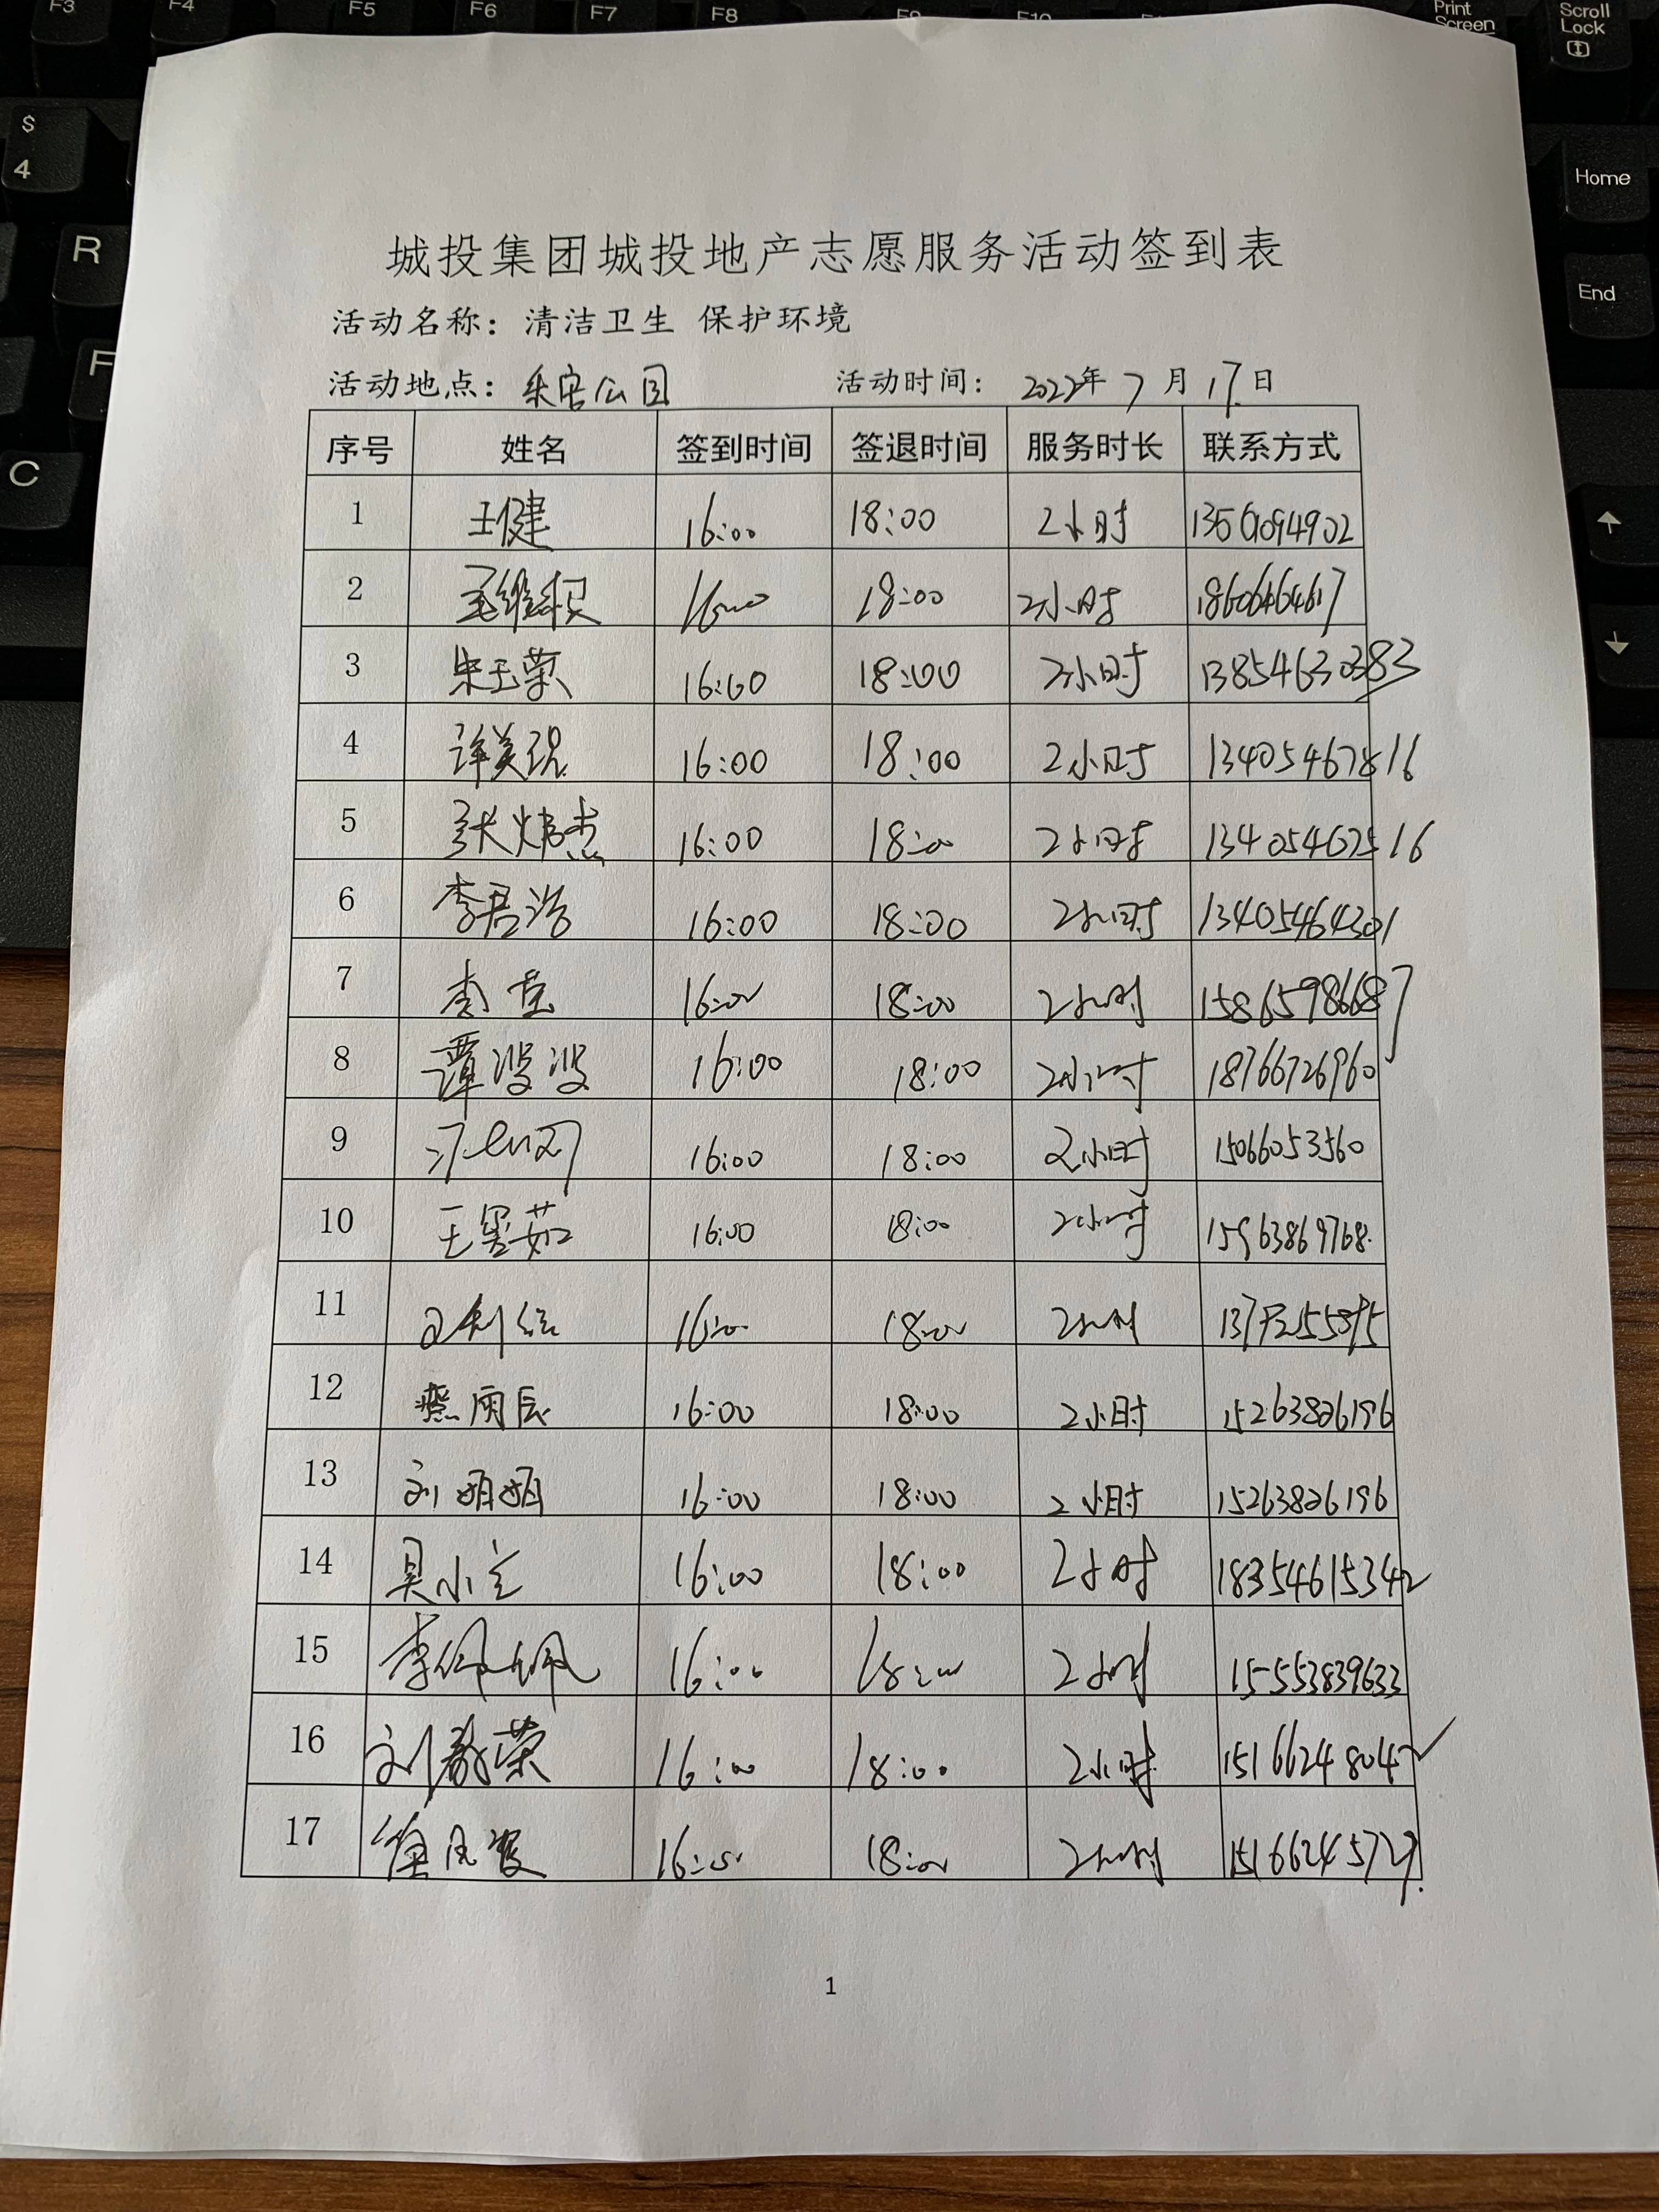 F3 F4 F5 F6 F7 F8 F9 F10 Print Screen Scroll Lock
$ 4
R
F
C
Home
End
城投集团城投地产志愿服务活动签到表
活动名称：清洁卫生 保护环境
活动地点：乐安公园 活动时间：2022年7月17日
序号 姓名 签到时间 签退时间 服务时长 联系方式
1 王健 16:00 18:00 2小时
2 16:00 18:00 2小时 18606464617
3 宋玉荣 16:00 18:00 2小时 13854630383
4 许美琨 16:00 18:00 2小时 13405467816
5 张炜杰 16:00 18:00 2小时
6 李君浩 16:00 18:00 2小时 13405464301
7 16:00 18:00 2小时 158659786687
8 谭波波 16:00 18:00 2小时 18766726960
9 16:00 18:00 2小时 15066053560
10 王墨茹 16:00 18:00 2小时 15963869768
11 16:00 18:00 2小时
12 燕雨辰 16:00 18:00 2小时 15263826196
13 刘娟娟 16:00 18:00 2小时 15263826196
14 吴小立 16:00 18:00 2小时 18354615342
15 李佩佩 16:00 18:00 2小时 15553839633
16 刘教荣 16:00 18:00 2小时 15166248042
17 16:00 18:00 2小时 15166245727
1